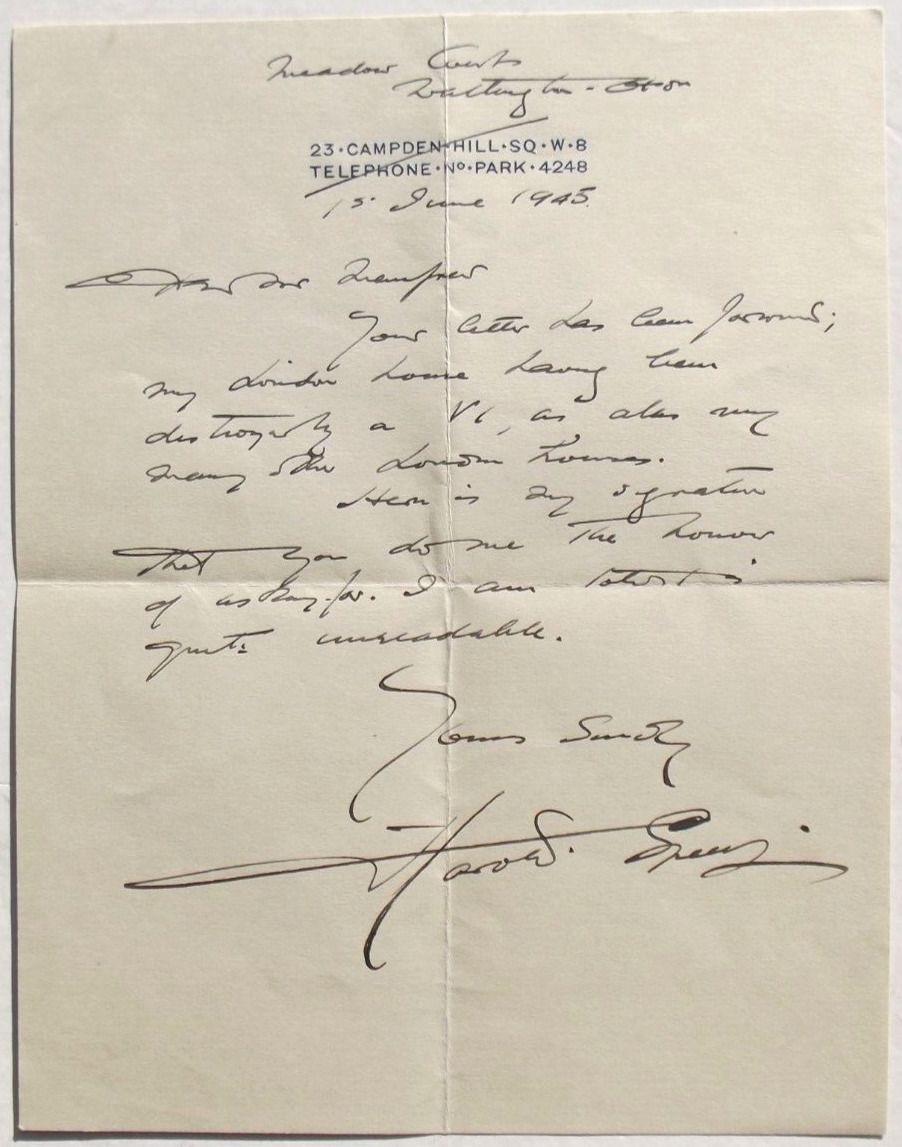 Meadow Courts
Watlington - Oxon
23·CAMPDEN·HILL·SQ·W·8
TELEPHONE·Nº·PARK·4248
15 June 1945.
Dear Mr
Your letter has been forward;
my London house having been
destroyed by a V1, as alas my
many other London houses.
Here is my signature
that you do me the honour
of asking for. I am told it is
quite unreadable.
Yours Sincerely
Harold